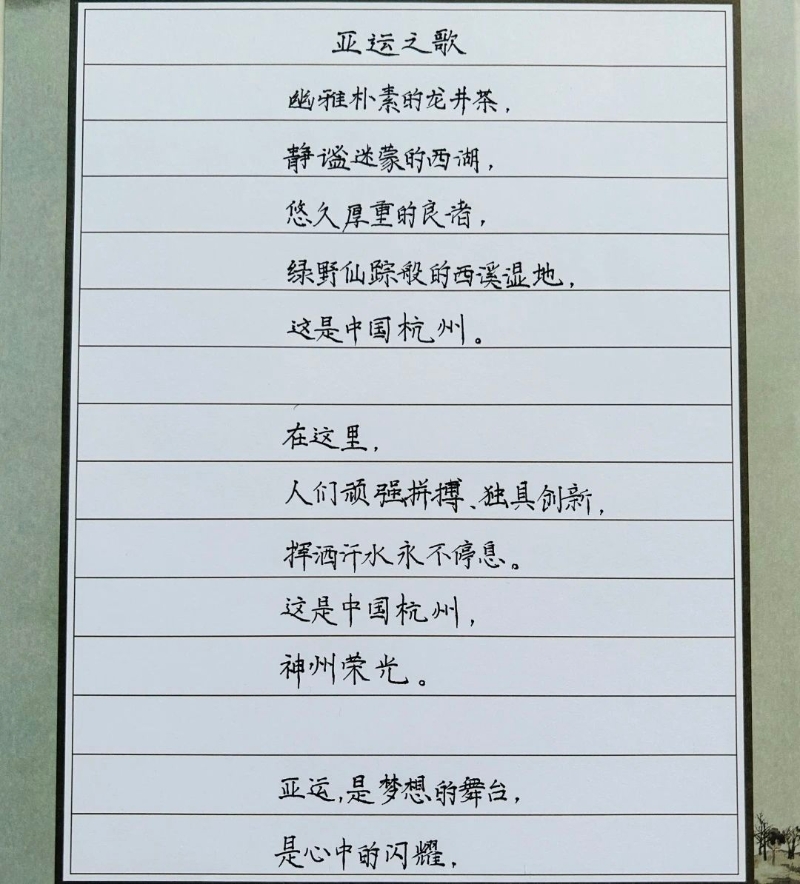 亚运之歌
幽雅朴素的龙井茶，
静谧迷蒙的西湖，
悠久厚重的良渚，
绿野仙踪般的西溪湿地，
这是中国杭州。
在这里，
人们顽强拼搏、独具创新，
挥洒汗水永不停息。
这是中国杭州，
神州荣光。
亚运，是梦想的舞台，
是心中的闪耀，